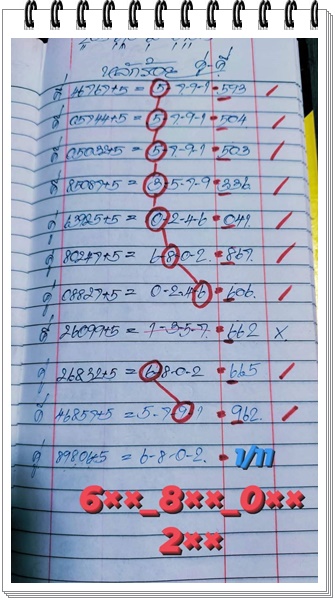 หลักร้อย คู่-คี่
คี่ 46767+5 = 5-7-9-1 = 593 /
คี่ 05744+5 = 5-7-9-1 = 504 /
คี่ 05032+5 = 5-7-9-1 = 503 /
คี่ 85087+5 = 3-5-7-9 = 336 /
คู่ 63925+5 = 0-2-4-6 = 041 /
คู่ 80247+5 = 6-8-0-2. = 867. /
คู่ 08827+5 = 0-2-4-6 = 606. /
คี่ 26099+5 = 1-3-5-7. = 662 x
คู่ 26832+5 = 6-8-0-2 = 665 /
คี่ 46857+5 = 5-7-9-1 = 962. /
คู่ 89806+5 = 6-8-0-2. = 1/11
6××_8××_0××
2××